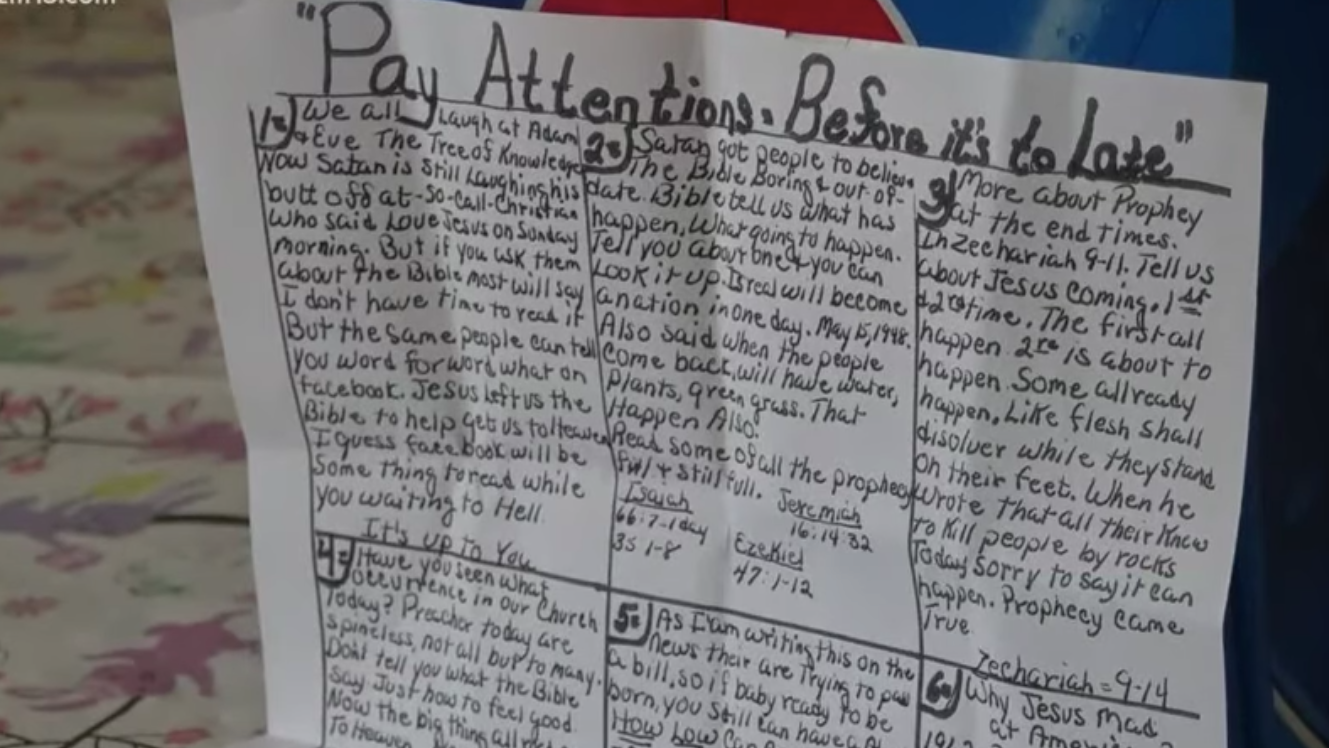 "Pay Attentions. Before it's to Late"
1= We all Laugh at Adam
& Eve The Tree of Knowledge
Now Satan is still Laughing his
butt off at -So-call-Christian
who said Love Jesus on Sunday
morning. But if you ask them
about the Bible most will say
I don't have time to read it
But the same people can tell
you word for word what on
facebook. Jesus left us the
Bible to help get us to Heaven
I guess facebook will be
Some thing to read while
you waiting to Hell.
It's up to You
2= Satan got people to believe
The Bible Boring & out-of-
date. Bible tell us what has
happen, What going to happen.
Tell you about one & you can
Look it up. Isreal will become
a nation in one day. May 15, 1948.
Also said when the people
Come back, will have water,
Plants, green grass. That
Happen Also.
Read some of all the prophecy
ful/+ still full.
Isaiah
66:7-1day
35 1-8
Jeremiah
16:14:32
Ezekiel
47:1-12
3= More about Prophey
at the end times.
In Zechariah 9-11. Tell us
about Jesus coming. 1st
& 2rd time. The first all
happen. 2rd is about to
happen. Some allready
happen. Like flesh shall
disolver while they stand
on their feet. When he
wrote that all their Knew
to Kill people by rocks
Today Sorry to say it can
happen. Prophecy Came
True.
Zechariah = 9-14
4= Have you seen what
occurrence in our Church
Today? Preacher today are
spineless, not all but to many.
Don't tell you what the Bible
say Just how to feel good.
Now the big thing all
To Heaven
5= As I am writing this on the
News their are Trying to pass
a bill, so if baby ready to be
born, you still can have a
How Low Can
6= Why Jesus mad
at